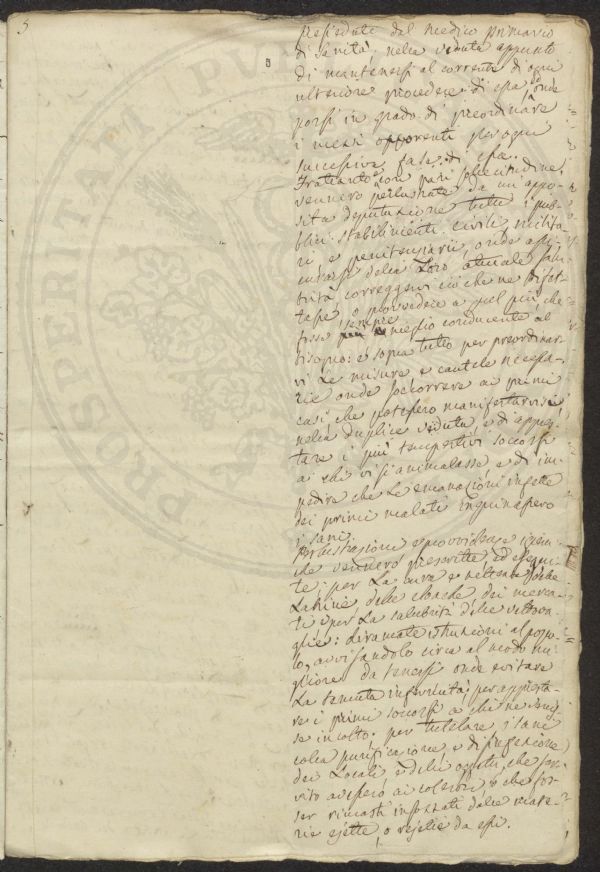 5
presiedute dal Medico primario
di Sanità, nella veduta appunto
di mantenersi al corrente di ogni
ulteriore procedere di essa, onde
porsi in grado di preordinare
i mezzi opponenti per ogni
successiva fase di essa.
Frattanto con pari sollecitudine
vennero perlustrate da un'appo-
sita deputazione tutti i pub-
blici stabilimenti civili, milita-
ri e penitenziarii, onde assi-
curarsi della loro attuale salu-
brità, correggervi ciò che ne difet-
tasse, o provvedere a quel più che
fosse sempre meglio conducente al
bisogno: e sopra tutto per preordinar-
vi le misure e cautele necessa-
rie onde soccorrere ai primi
casi che potessero manifestarvisi
nella duplice veduta, e di appres-
tare i più tempestivi soccorsi
ai chi vi si ammalasse, e di im-
pedire che le emanazioni infette
dei primi malati inquinassero
i sani.
Perlustrazione e provvidenze igieni-
che vennero prescritte, ed esegui-
te: per la cura e nettezza delle
latrine delle cloache, dei merca-
ti e per la salubrità delle vettova-
glie: diramate istruzioni al popo-
lo, avvisandolo circa al modo mi-
gliore da tenersi onde evitare
la temuta infermità; per appresta-
re i primi soccorsi a chi ne fos-
se incolto: per tutelare i sani
colla purificazione, e disinfezione
dei locali e delli oggetti, che ser-
vito avessero ai colerosi, o che fos-
ser rimasti infettati dalle mate-
rie ejette, o rejette da essi.
PROSPERITATI PVB